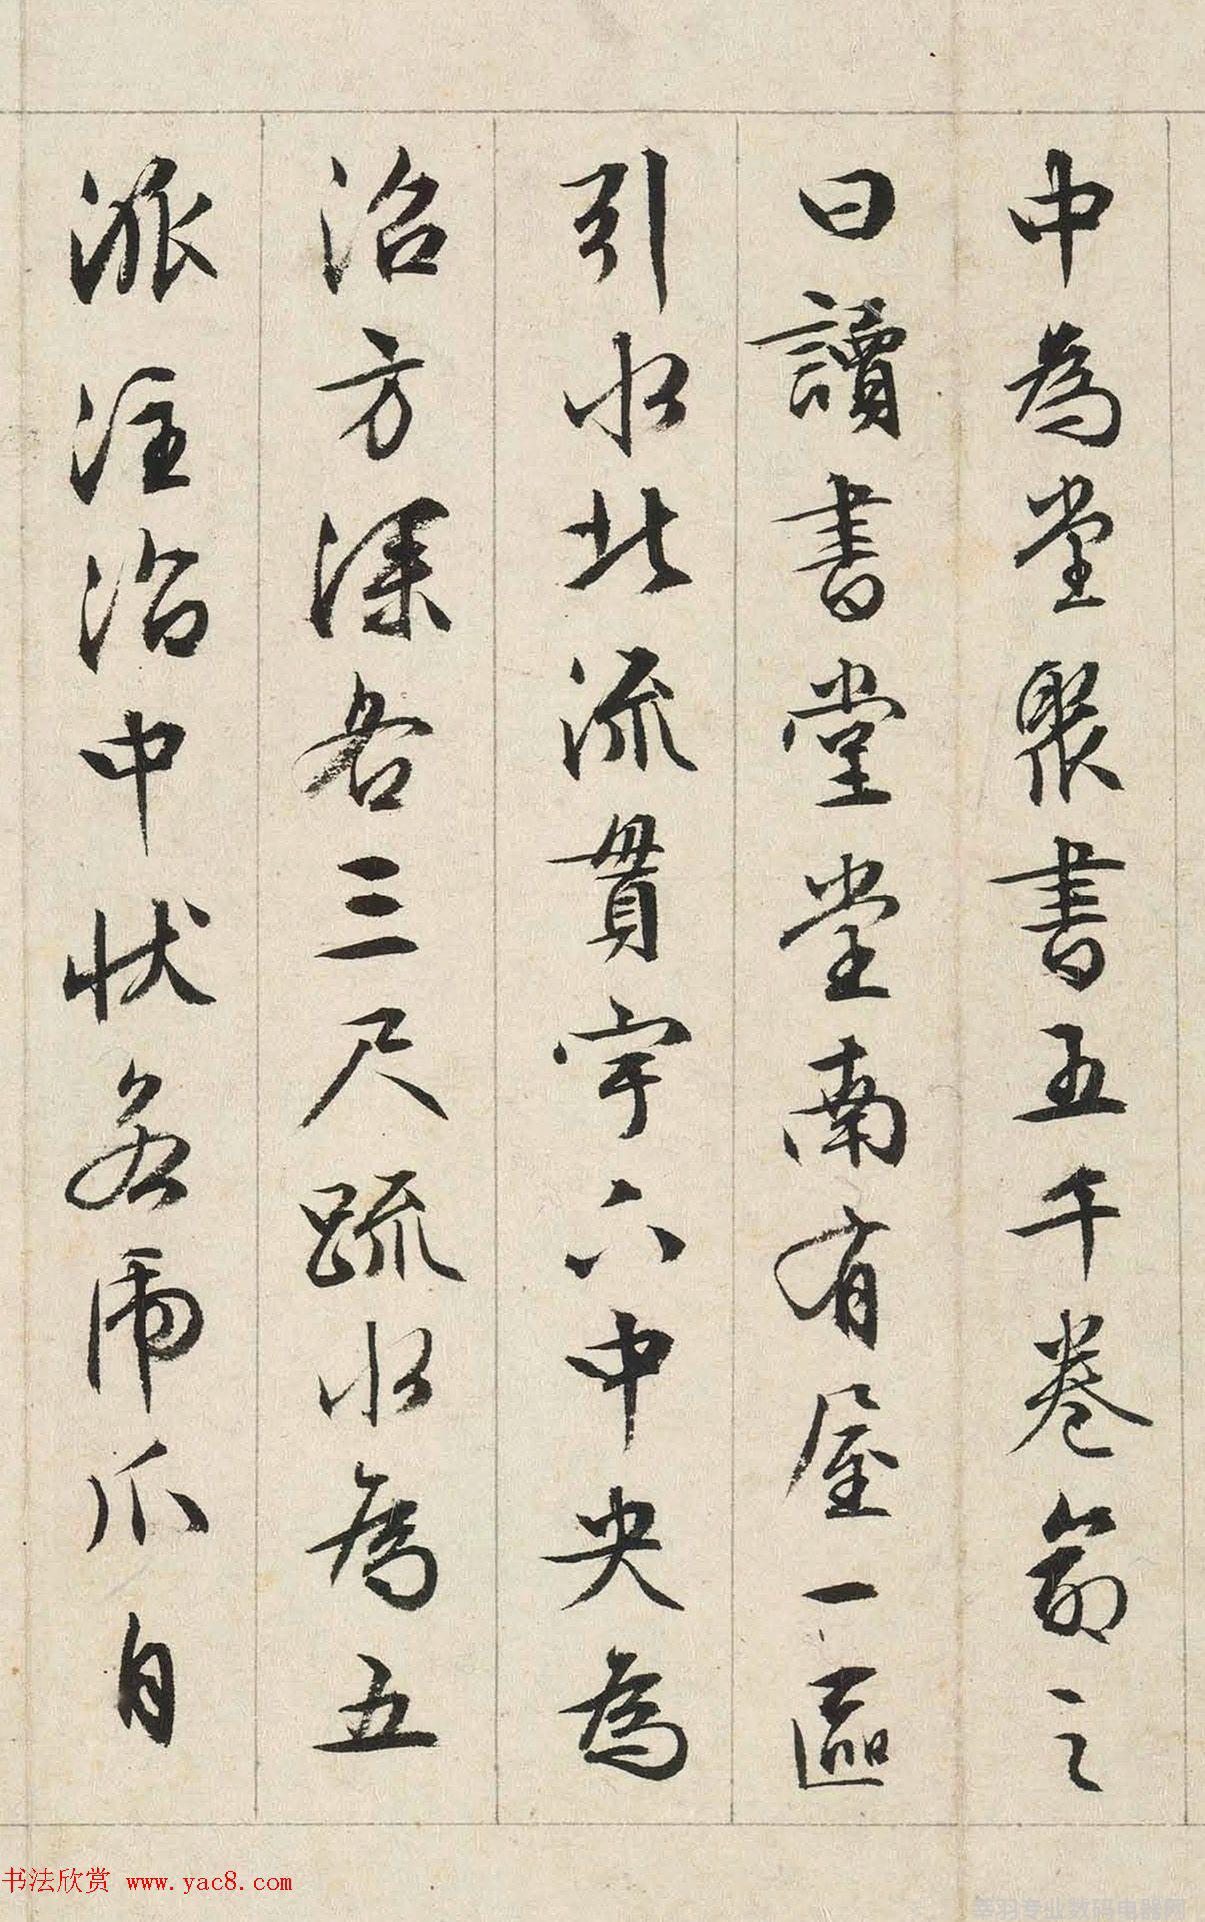 中為堂聚書五千卷命之
曰讀書堂堂南有屋一區
引水北流貫宇下中央為
沼方深各三尺疏水為五
派注沼中状若虎爪自
书法欣赏 www.yac8.com
专业数码电器网